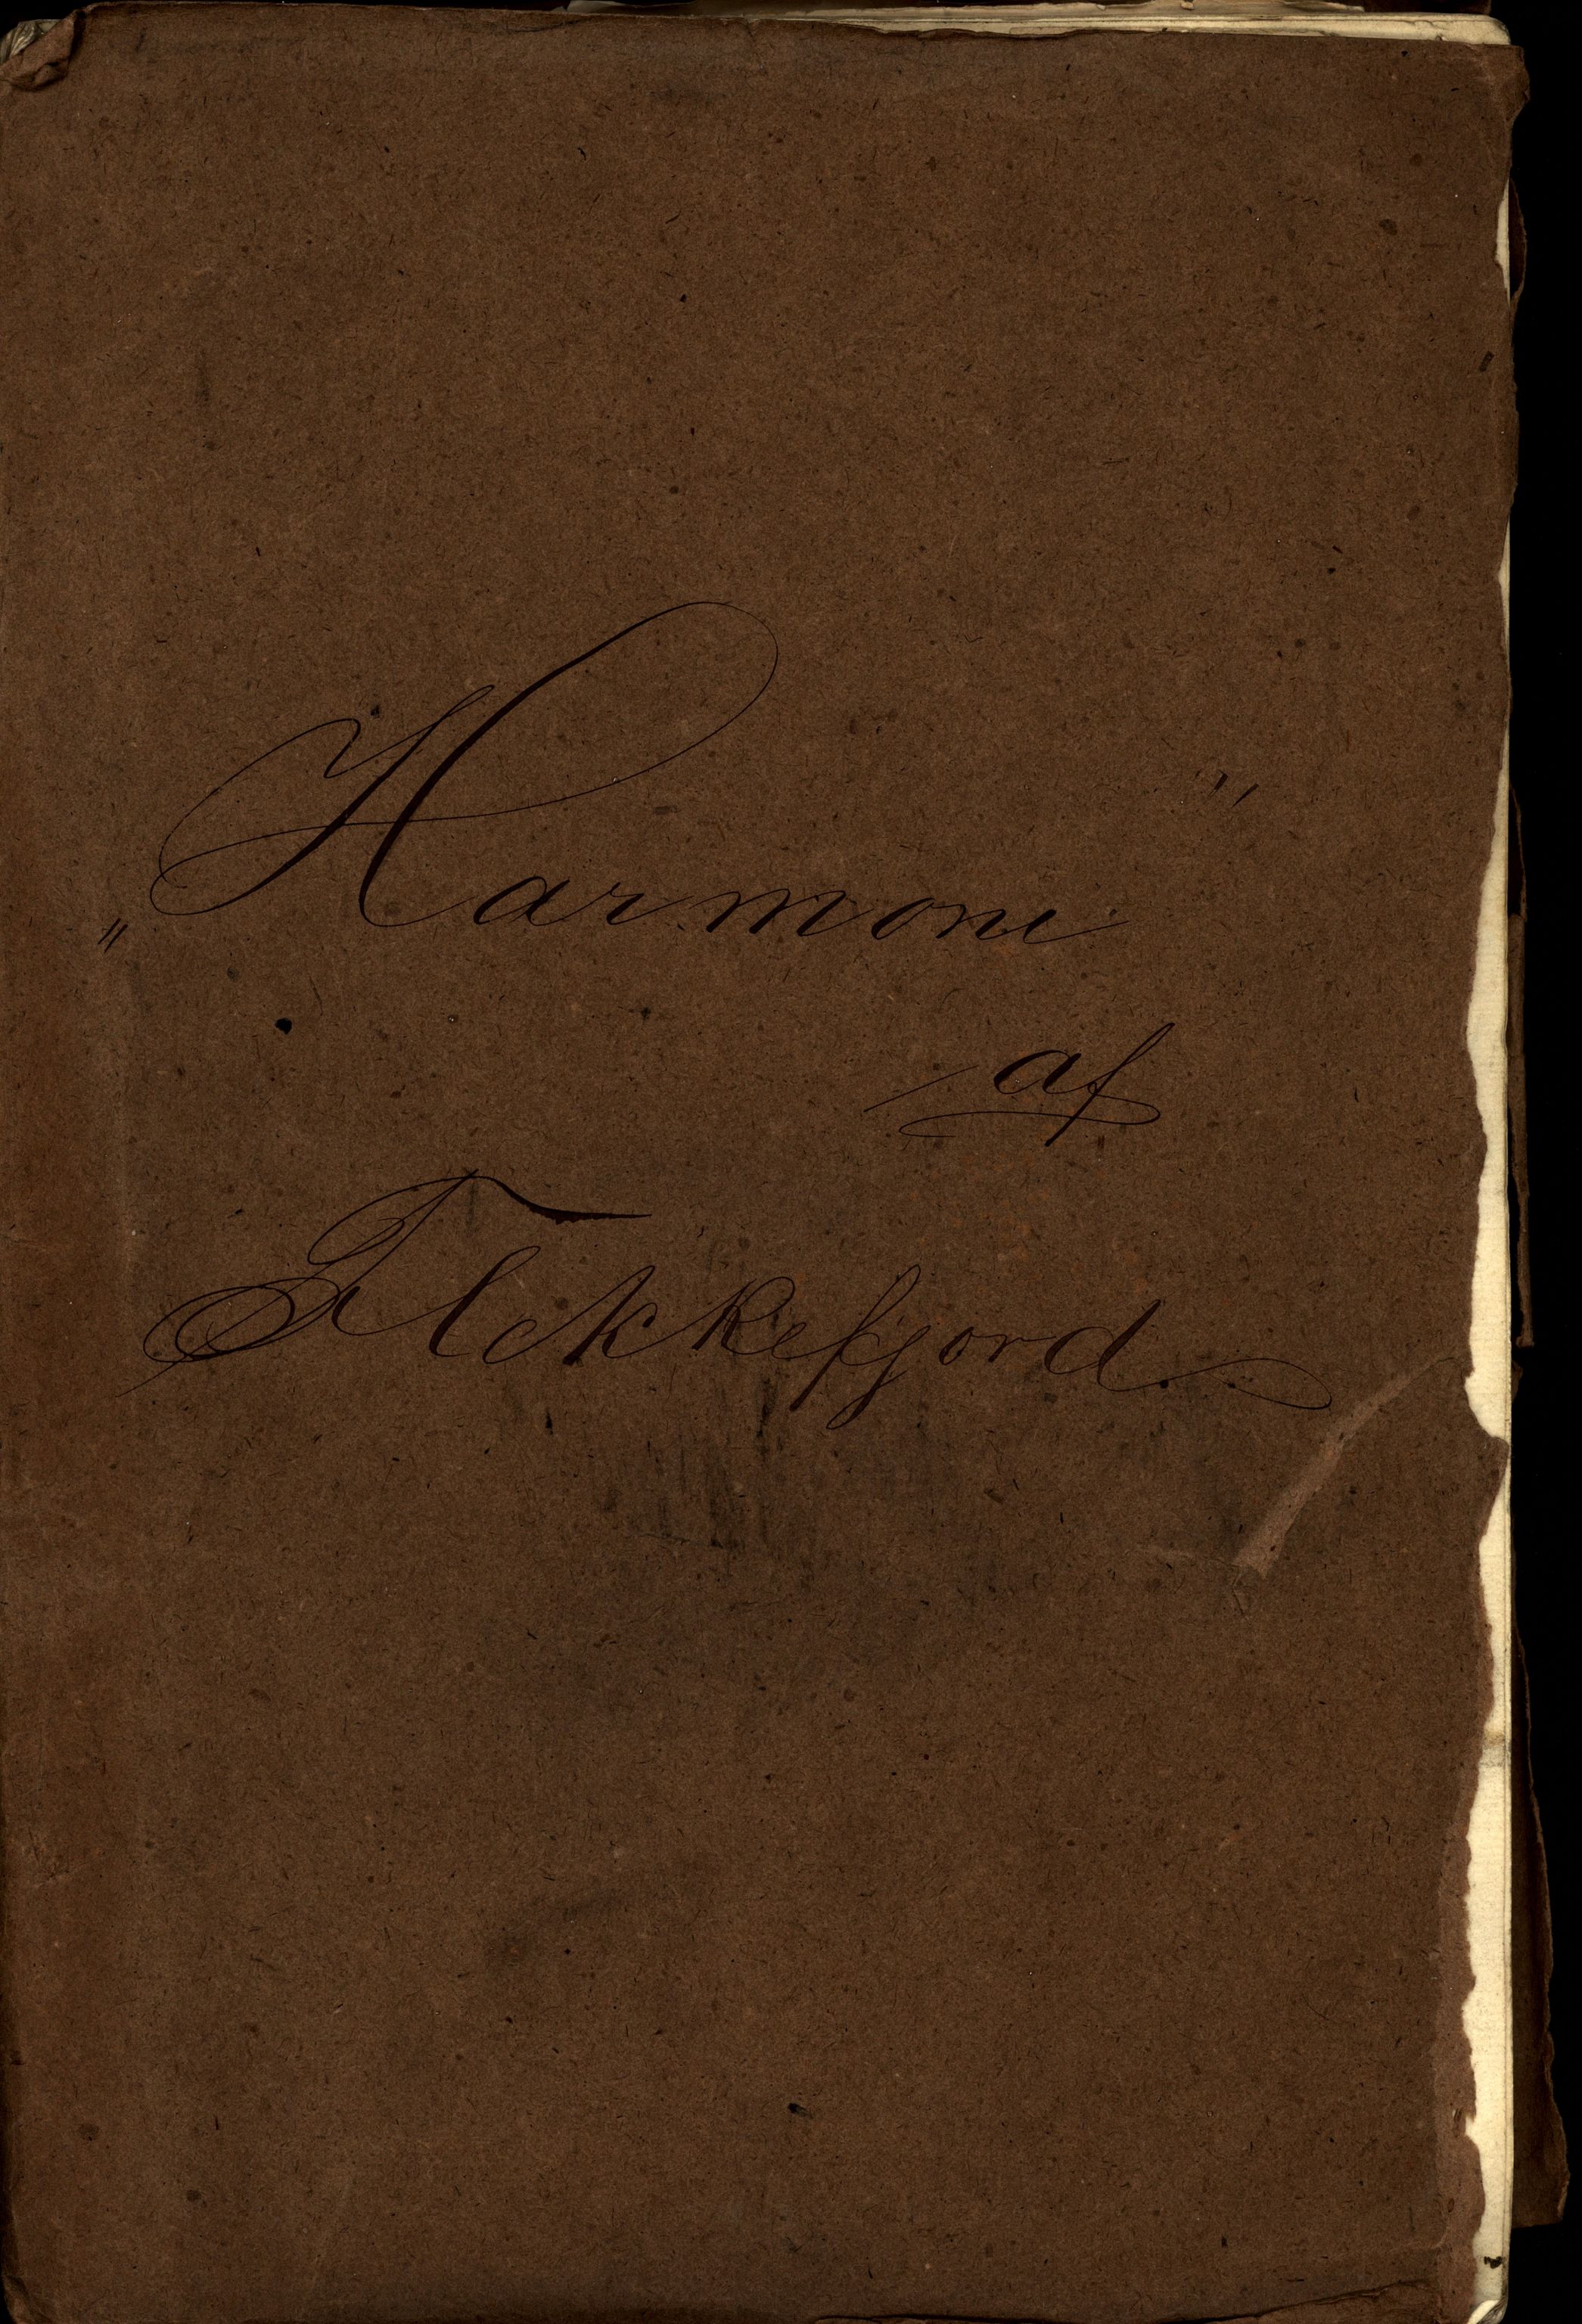 „Harmoni"
af
Flekkefjord